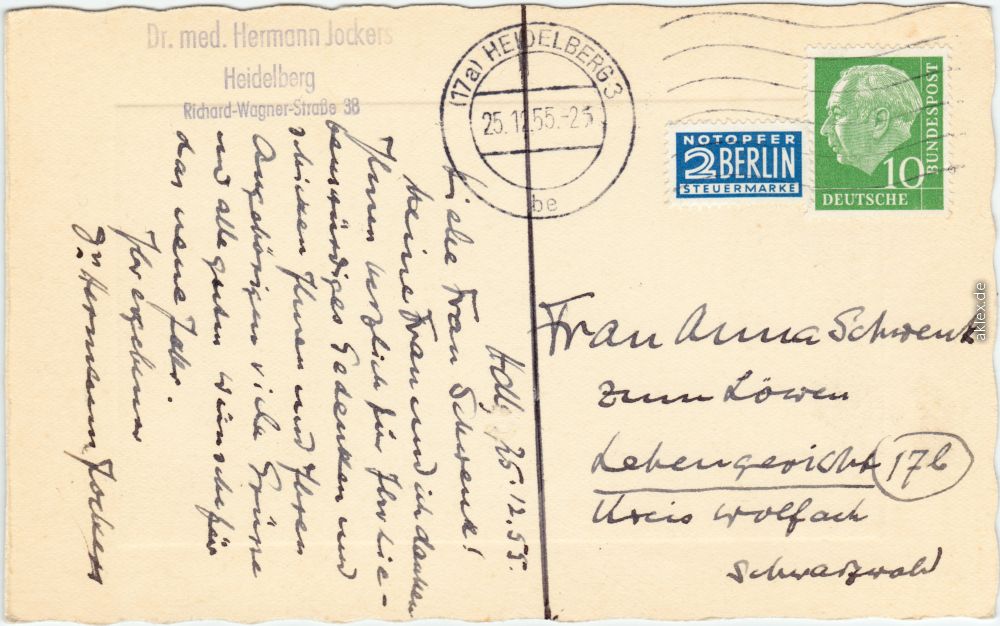 Dr. med. Hermann Jockers
Heidelberg
Richard-Wagner-Straße 38
(17a) HEIDELBERG 3
25.12.55.-23
be
NOTOPFER
2 BERLIN
STEUERMARKE
10
DEUTSCHE
BUNDESPOST
Hdlg, 25.12.55.
Liebe Frau Schwenk!
Meine Frau und ich danken
Ihnen herzlich für Ihr lie-
benswürdiges Gedenken und
schicken Ihnen und Ihren
Angehörigen viele Grüsse
und alle guten Wünsche für
das neue Jahr.
Ihr ergebener
Dr. Hermann Jockers
Frau Anna Schwenk
zum Löwen
Lehengericht 17b
Kreis Wolfach
Schwarzwald
aklex.de